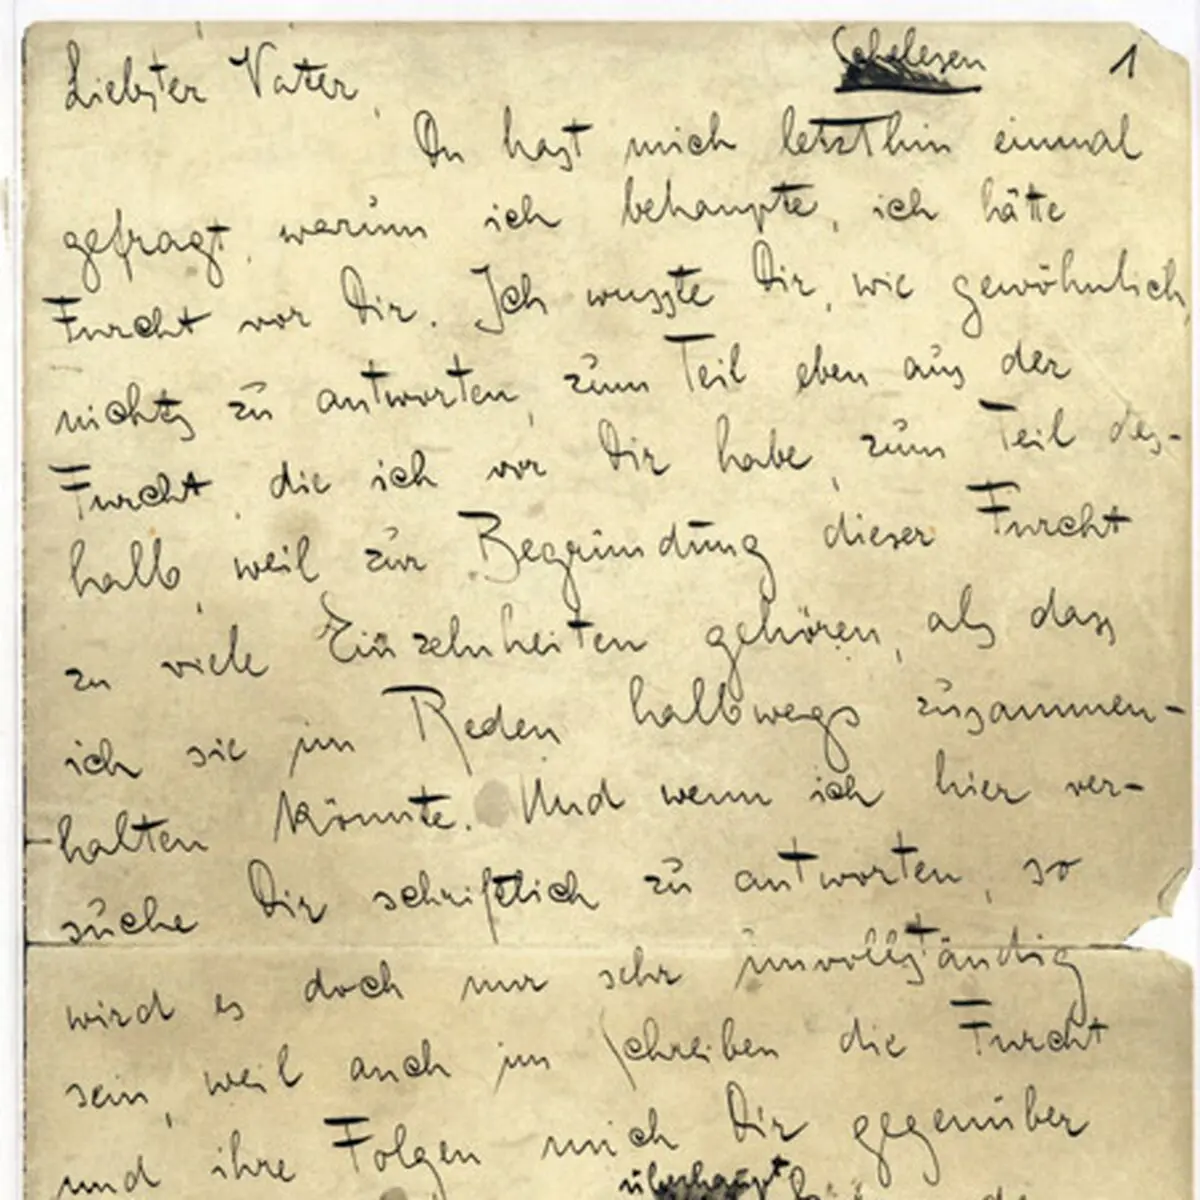 Schelesen 1
Liebster Vater,
Du hast mich letzthin einmal
gefragt, warum ich behaupte, ich hätte
Furcht vor Dir. Ich wusste Dir, wie gewöhnlich,
nichts zu antworten, zum Teil eben aus der
Furcht, die ich vor Dir habe, zum Teil des-
halb, weil zur Begründung dieser Furcht
zu viele Einzelnheiten gehören, als dass
ich sie im Reden halbwegs zusammen-
halten könnte. Und wenn ich hier ver-
suche Dir schriftlich zu antworten, so
wird es doch nur sehr unvollständig
sein, weil auch im Schreiben die Furcht
und ihre Folgen mich Dir gegenüber
überhaupt